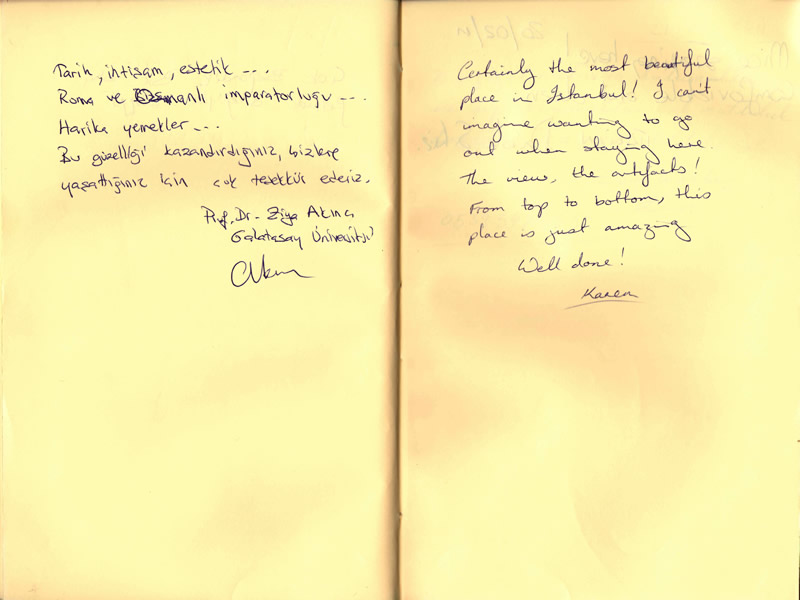 Tarih, ihtişam, estetik ---
Roma ve Osmanlı imparatorluğu ---
Harika yemekler ---
Bu güzelliği kazandırdığınız, bizlere
yaşattığınız için çok teşekkür ederiz.
Prof. Dr. Ziya Akıncı
Galatasaray Üniversitesi
Certainly the most beautiful
place in Istanbul! I can't
imagine wanting to go
out when staying here.
The view, the artifacts!
From top to bottom, this
place is just amazing
Well done!
Karen
20/02/11